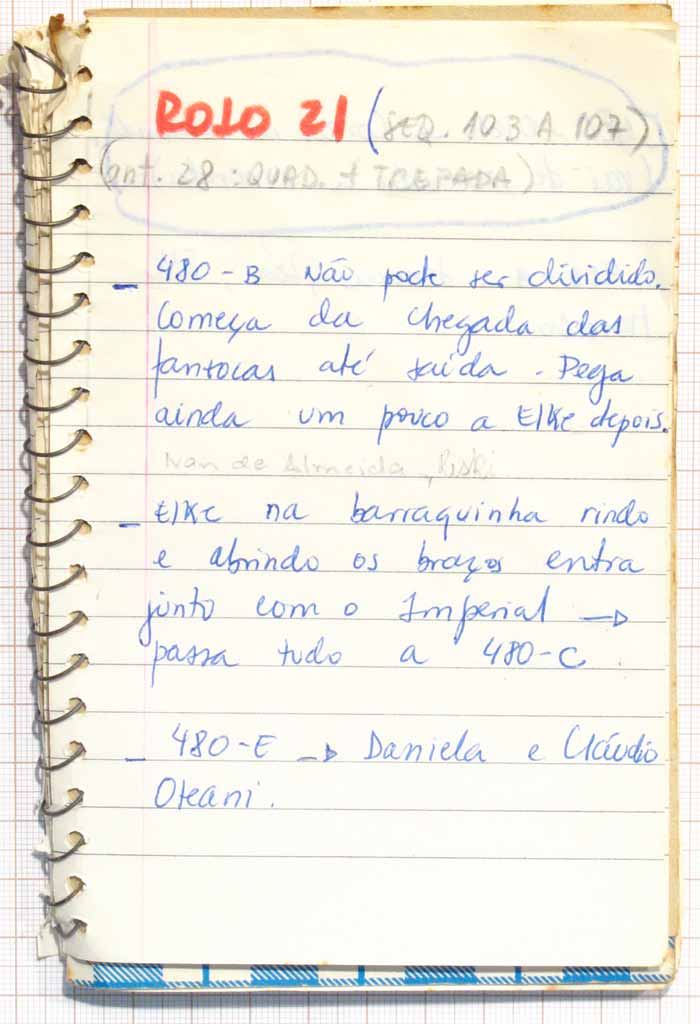 ROLO 21 (SEQ. 103 A 107)
(ant. 28: QUAD. + TREPADA)
- 480-B Não pode ser dividido.
Começa da chegada das
fantocas até saída. Pega
ainda um pouco a Elke depois.
de Almeida,
- Elke na barraquinha rindo
e abrindo os braços entra
junto com o Imperial →
passa tudo a 480-C.
- 480-E → Daniela e Cláudio
Oteani.